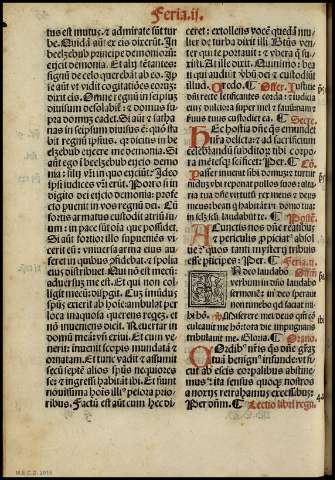 Feria.ij.
tus est mutus: & admirate sūt tur
be. Quidā aūt ex eis dixerūt. In
beelzebub principe demoniorū:
eijcit demonia. Et alij tētantes:
signū de celo querebāt ab eo. Ip
se aūt vt vidit cogitatiōes eorū:
dixit eis. Omne regnū in seipsū
diuisum desolabit̄: & domus su
pra domū cadet. Si aūt & satha
nas in seipsum diuisus ē: quō sta
bit regnū ipsius. qr dicitis in be
elzebub eijcere me demonia. Si
aūt ego ī beelzebub eijcio demo
nia: filij vr̄i in quo eijciūt? Ideo
ipsi iudices vr̄i erūt. Porro si in
digito dei eijcio demonia: profe
cto puenit in vos regnū dei. Cū
fortis armatus custodit atriū su
um: in pace sūt oīa que possidet.
Si aūt fortior illo supueniēs: vi
cerit eū: vniuersa arma eius au
feret in quibus p̄fidebat. & spolia
eius distribuet. Qui nō est mecū:
aduersus me est. Et qui non col
ligit mecū: dispgit. Cū īmūdus
spūs exierit ab hoīe: ambulat per
loca inaquosa querens requiē. et
nō inueniens dicit. Reuertar in
domū meā: vn̄ exiui. Et cum ve
nerit: inuenit scopis mundatā &
ornatam. Et tunc vadit & assumit
secū septē alios spūs nequiores
se: & ingressi habitāt ibi. Et sunt
nouissima hoīs illiꝰ peiora prio
ribus. Factū est aūt cum hec di
ceret: extollens vocē quedā mu
lier de turba dixit illi. Btūs ven
ter qui te portauit: & vbera q̄ su
xisti. At ille dixit. Quinimo: beati
qui audiūt v̄bū dei & custodiūt
illud. Offer. Iusticie
dn̄i recte letificantes corda: & iudicia
eius dulciora super mel & fauū: nam &
seruus tuus custodiet ea. Secre.
Hec hostia dn̄e q̄s emundet
nr̄a delicta: & ad sacrificium
celebrandū subditoꝝ tibi corpo
ra mētesq̄ scificet: Per. Cō.
Passer inuenit sibi domū: & turtur
nidū: vbi reponat pullos suos: alta
ria tua dn̄e virtutū rex meus & deus
meus: beati q̄ habitāt ī domo tua:
in secl̄m sclī laudabūt te. Postcō.
A cunctis nos dn̄e reatibus
& periculis ppiciatꝰ absol
ue: quos tanti mysterij tribuis
esse p̄ticipes: Per. Feria.ij.
In deo laudabo Offm̄
verbum: in dn̄o laudabo
sermonē: in deo sperabo
non timebo qd̄ faciat mi
hi hō. Miserere mei deus qm̄ cō
culcauit me hō: tota die impugnans
tribulauit me. Gloria. Oratio.
Cordibꝰ nr̄is q̄s dn̄e gr̄am
tuā benignꝰ infunde: vt si
cut ab escis corpalibus abstine
mus: ita sensus quoq̄ nostros
a noxijs retrahamus excessibus.
Per dn̄m. Lectio libri regū.